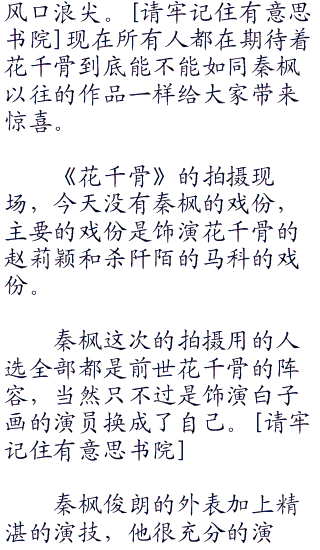 风口浪尖。[请牢记住有意思
书院]现在所有人都在期待着
花千骨到底能不能如同秦枫
以往的作品一样给大家带来
惊喜。
《花千骨》的拍摄现
场，今天没有秦枫的戏份，
主要的戏份是饰演花千骨的
赵莉颖和杀阡陌的马科的戏
份。
秦枫这次的拍摄用的人
选全部都是前世花千骨的阵
容，当然只不过是饰演白子
画的演员换成了自己。[请牢
记住有意思书院]
秦枫俊朗的外表加上精
湛的演技，他很充分的演